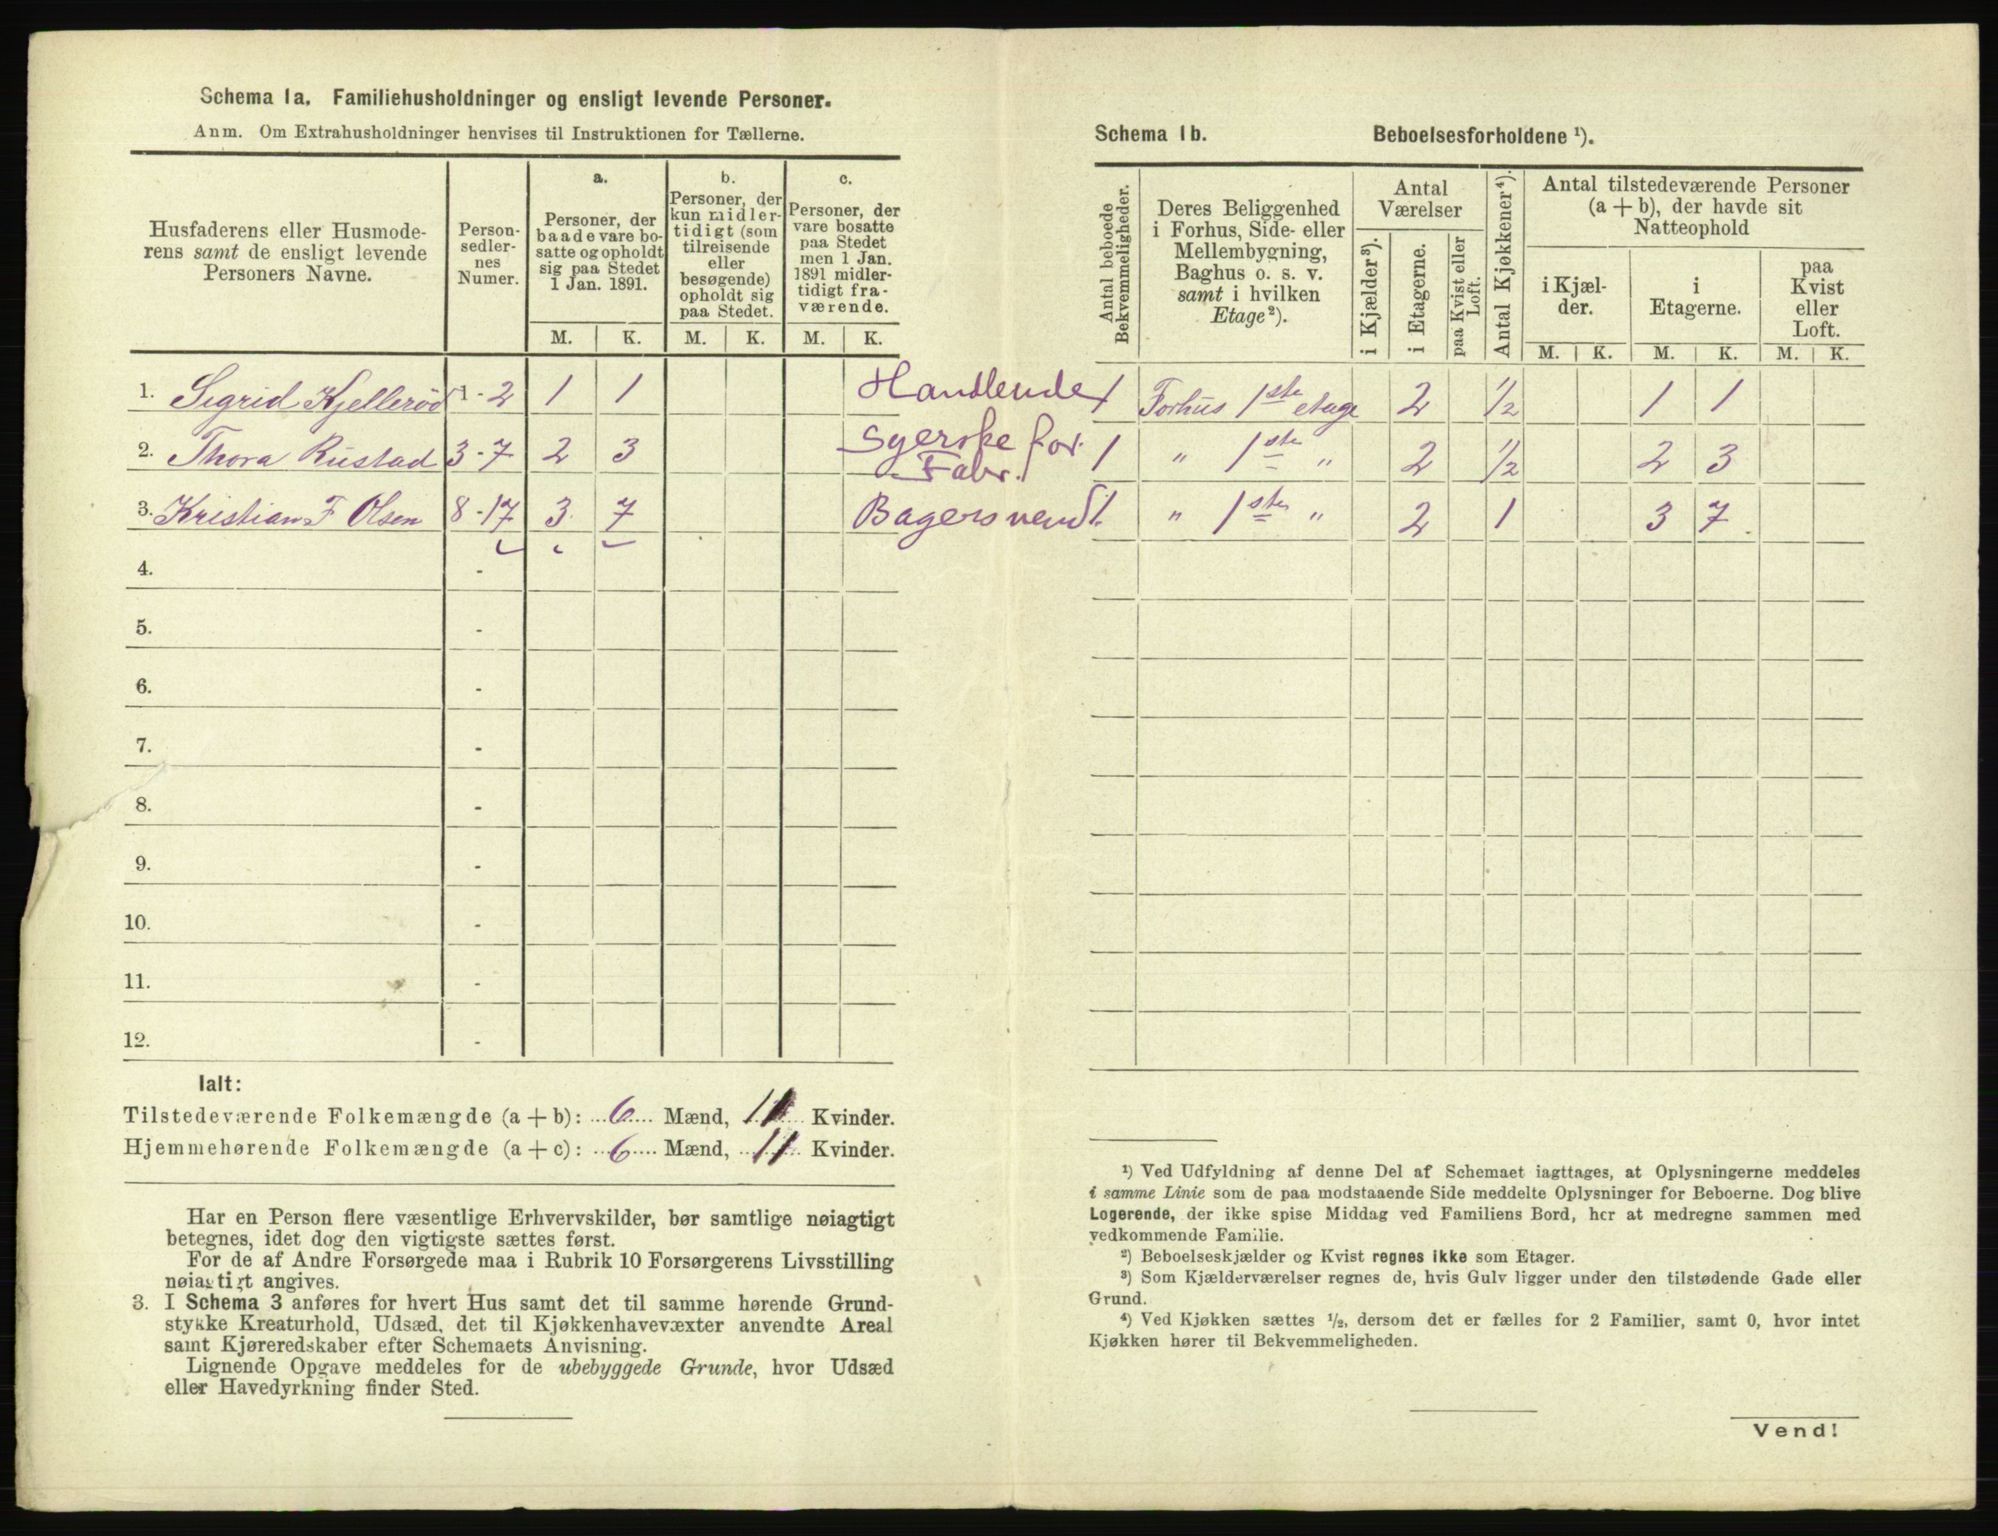 Schema 1a. Familiehusholdninger og ensligt levende Personer.
Anm. Om Extrahusholdninger henvises til Instruktionen for Tællerne.
Husfaderens eller Husmoderens samt de ensligt levende Personers Navne.
Person-sedler-nes Numer.
a.
Personer, der baade vare bosatte og opholdt sig paa Stedet 1 Jan. 1891.
b.
Personer, der kun midlertidigt (som tilreisende eller besøgende) opholdt sig paa Stedet.
c.
Personer, der vare bosatte paa Stedet men 1 Jan. 1891 midlertidigt fraværende.
M. K. M. K. M. K.
1. Sigrid Kjellerød 1-2 1 1 Handlende
2. Thora Rustad 3-7 2 3 Syerske for. Fabr.
3. Kristian F Olsen 8-17 3 7 Bagersvend
4. -
5. -
6. -
7. -
8. -
9. -
10. -
11. -
12. -
Ialt:
Tilstedeværende Folkemængde (a + b): 6 Mænd, 11 Kvinder.
Hjemmehørende Folkemængde (a + c): 6 Mænd, 11 Kvinder.
Har en Person flere væsentlige Erhvervskilder, bør samtlige nøiagtigt
betegnes, idet dog den vigtigste sættes først.
For de af Andre Forsørgede maa i Rubrik 10 Forsørgerens Livsstilling
nøiagtigt angives.
3. I Schema 3 anføres for hvert Hus samt det til samme hørende Grund-
stykke Kreaturhold, Udsæd, det til Kjøkkenhavevæxter anvendte Areal
samt Kjøreredskaber efter Schemaets Anvisning.
Lignende Opgave meddeles for de ubebyggede Grunde, hvor Udsæd
eller Havedyrkning finder Sted.
Schema 1b. Beboelsesforholdene ¹).
Antal beboede Bekvemmeligheder.
Deres Beliggenhed i Forhus, Side- eller Mellembygning, Baghus o. s. v. samt i hvilken Etage²).
Antal Værelser
i Kjælder³).
i Etagerne.
paa Kvist eller Loft.
Antal Kjøkkener⁴).
Antal tilstedeværende Personer (a + b), der havde sit Natteophold
i Kjælder.
i Etagerne.
paa Kvist eller Loft.
M. K. M. K. M. K.
1 Forhus 1ste etage 2 1/2 1 1
1 " 1ste " 2 1/2 2 3
1. " 1ste " 2 1 3 7
¹) Ved Udfyldning af denne Del af Schemaet iagttages, at Oplysningerne meddeles
i samme Linie som de paa modstaaende Side meddelte Oplysninger for Beboerne. Dog blive
Logerende, der ikke spise Middag ved Familiens Bord, her at medregne sammen med
vedkommende Familie.
²) Beboelseskjælder og Kvist regnes ikke som Etager.
³) Som Kjælderværelser regnes de, hvis Gulv ligger under den tilstødende Gade eller
Grund.
⁴) Ved Kjøkken sættes ½, dersom det er fælles for 2 Familier, samt 0, hvor intet
Kjøkken hører til Bekvemmeligheden.
Vend!